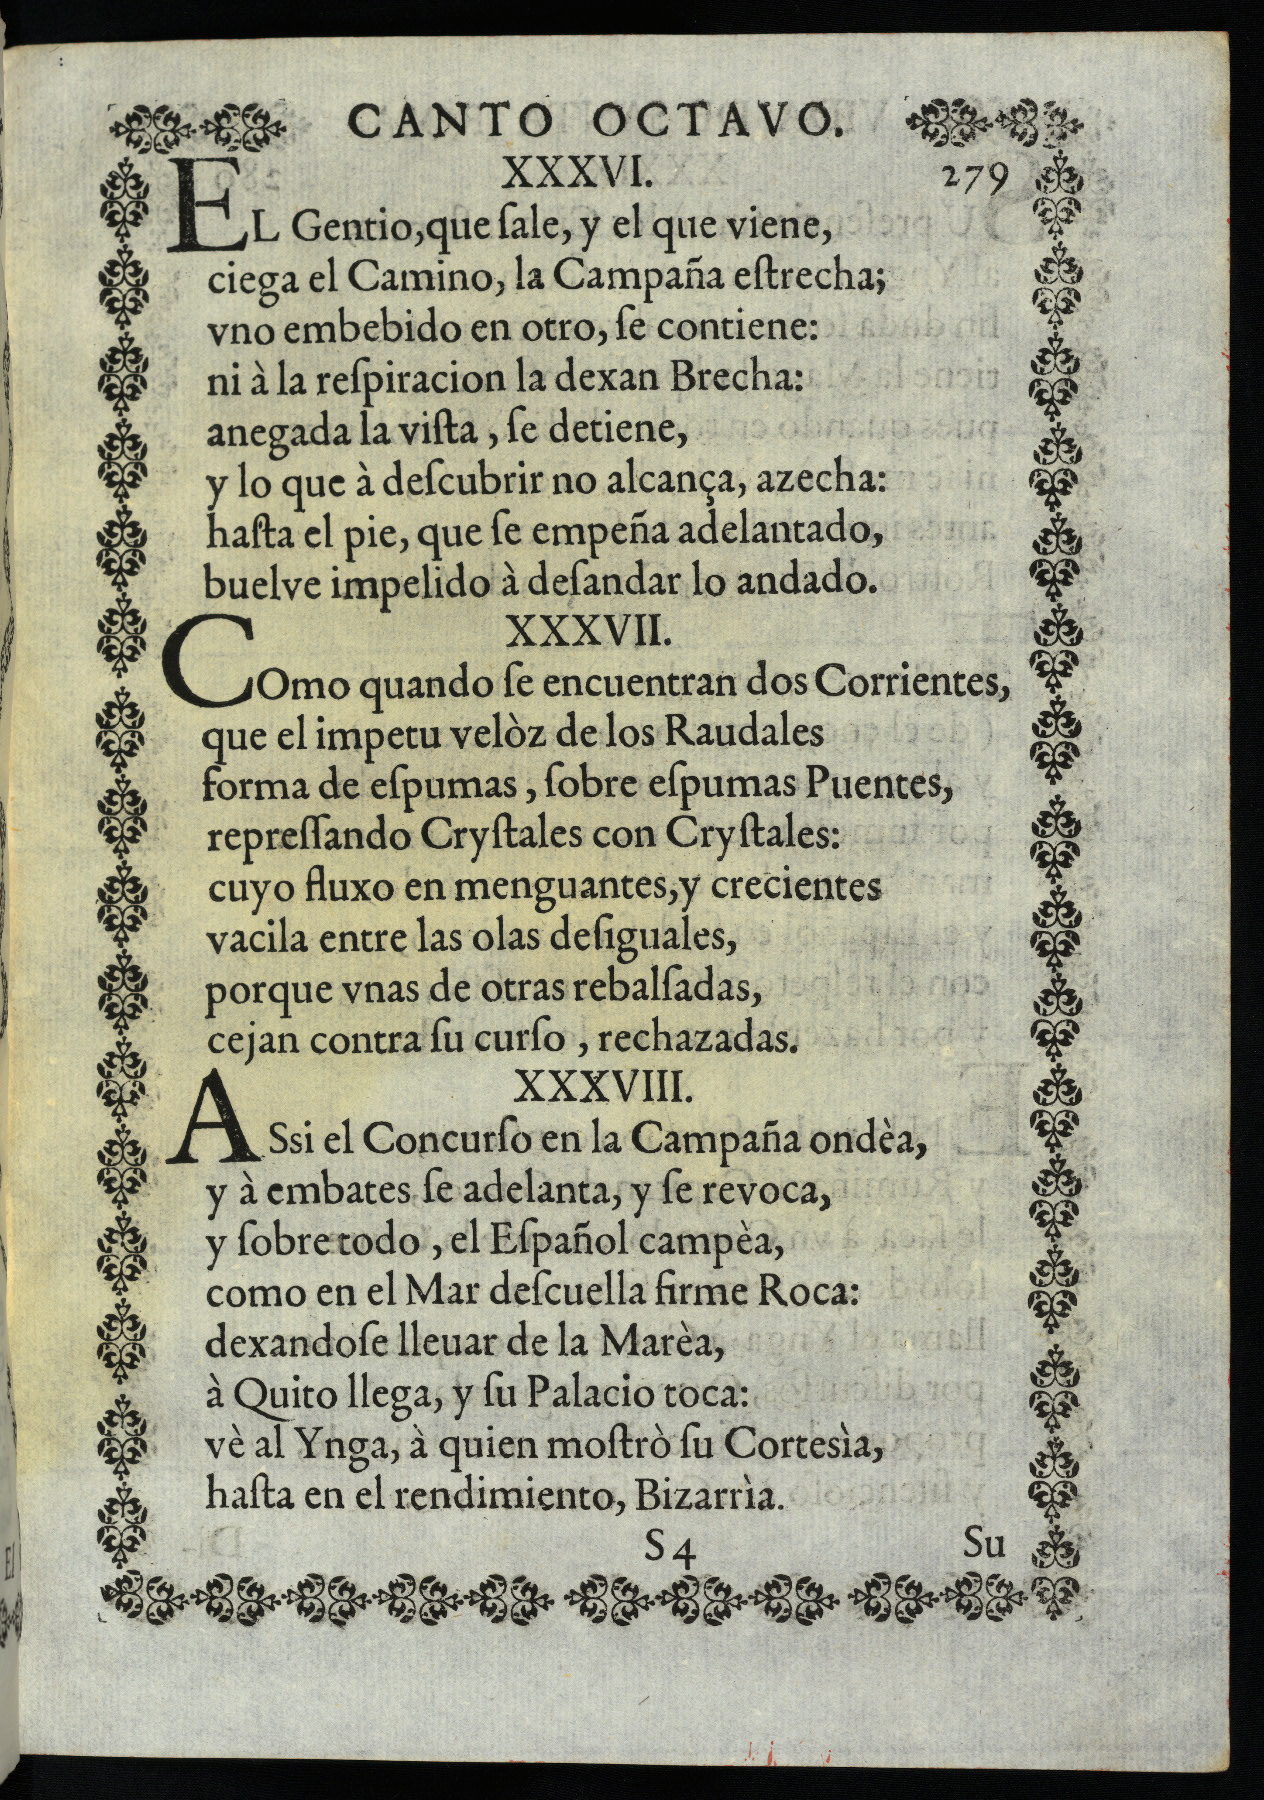 CANTO OCTAVO.
XXXVI. 279
EL Gentio, que ſale, y el que viene,
ciega el Camino, la Campaña eſtrecha;
vno embebido en otro, ſe contiene:
ni à la reſpiracion la dexan Brecha:
anegada la viſta, ſe detiene,
y lo que à deſcubrir no alcança, azecha:
haſta el pie, que ſe empeña adelantado,
buelve impelido à deſandar lo andado.
XXXVII.
COmo quando ſe encuentran dos Corrientes,
que el impetu velòz de los Raudales
forma de eſpumas, ſobre eſpumas Puentes,
repreſſando Cryſtales con Cryſtales:
cuyo fluxo en menguantes, y crecientes
vacila entre las olas deſiguales,
porque vnas de otras rebalſadas,
cejan contra ſu curſo, rechazadas.
XXXVIII.
ASsi el Concurſo en la Campaña ondèa,
y à embates ſe adelanta, y ſe revoca,
y ſobre todo, el Eſpañol campèa,
como en el Mar deſcuella firme Roca:
dexandoſe lleuar de la Marèa,
à Quito llega, y ſu Palacio toca:
vè al Ynga, à quien moſtrò ſu Cortesìa,
haſta en el rendimiento, Bizarrìa.
S 4 Su